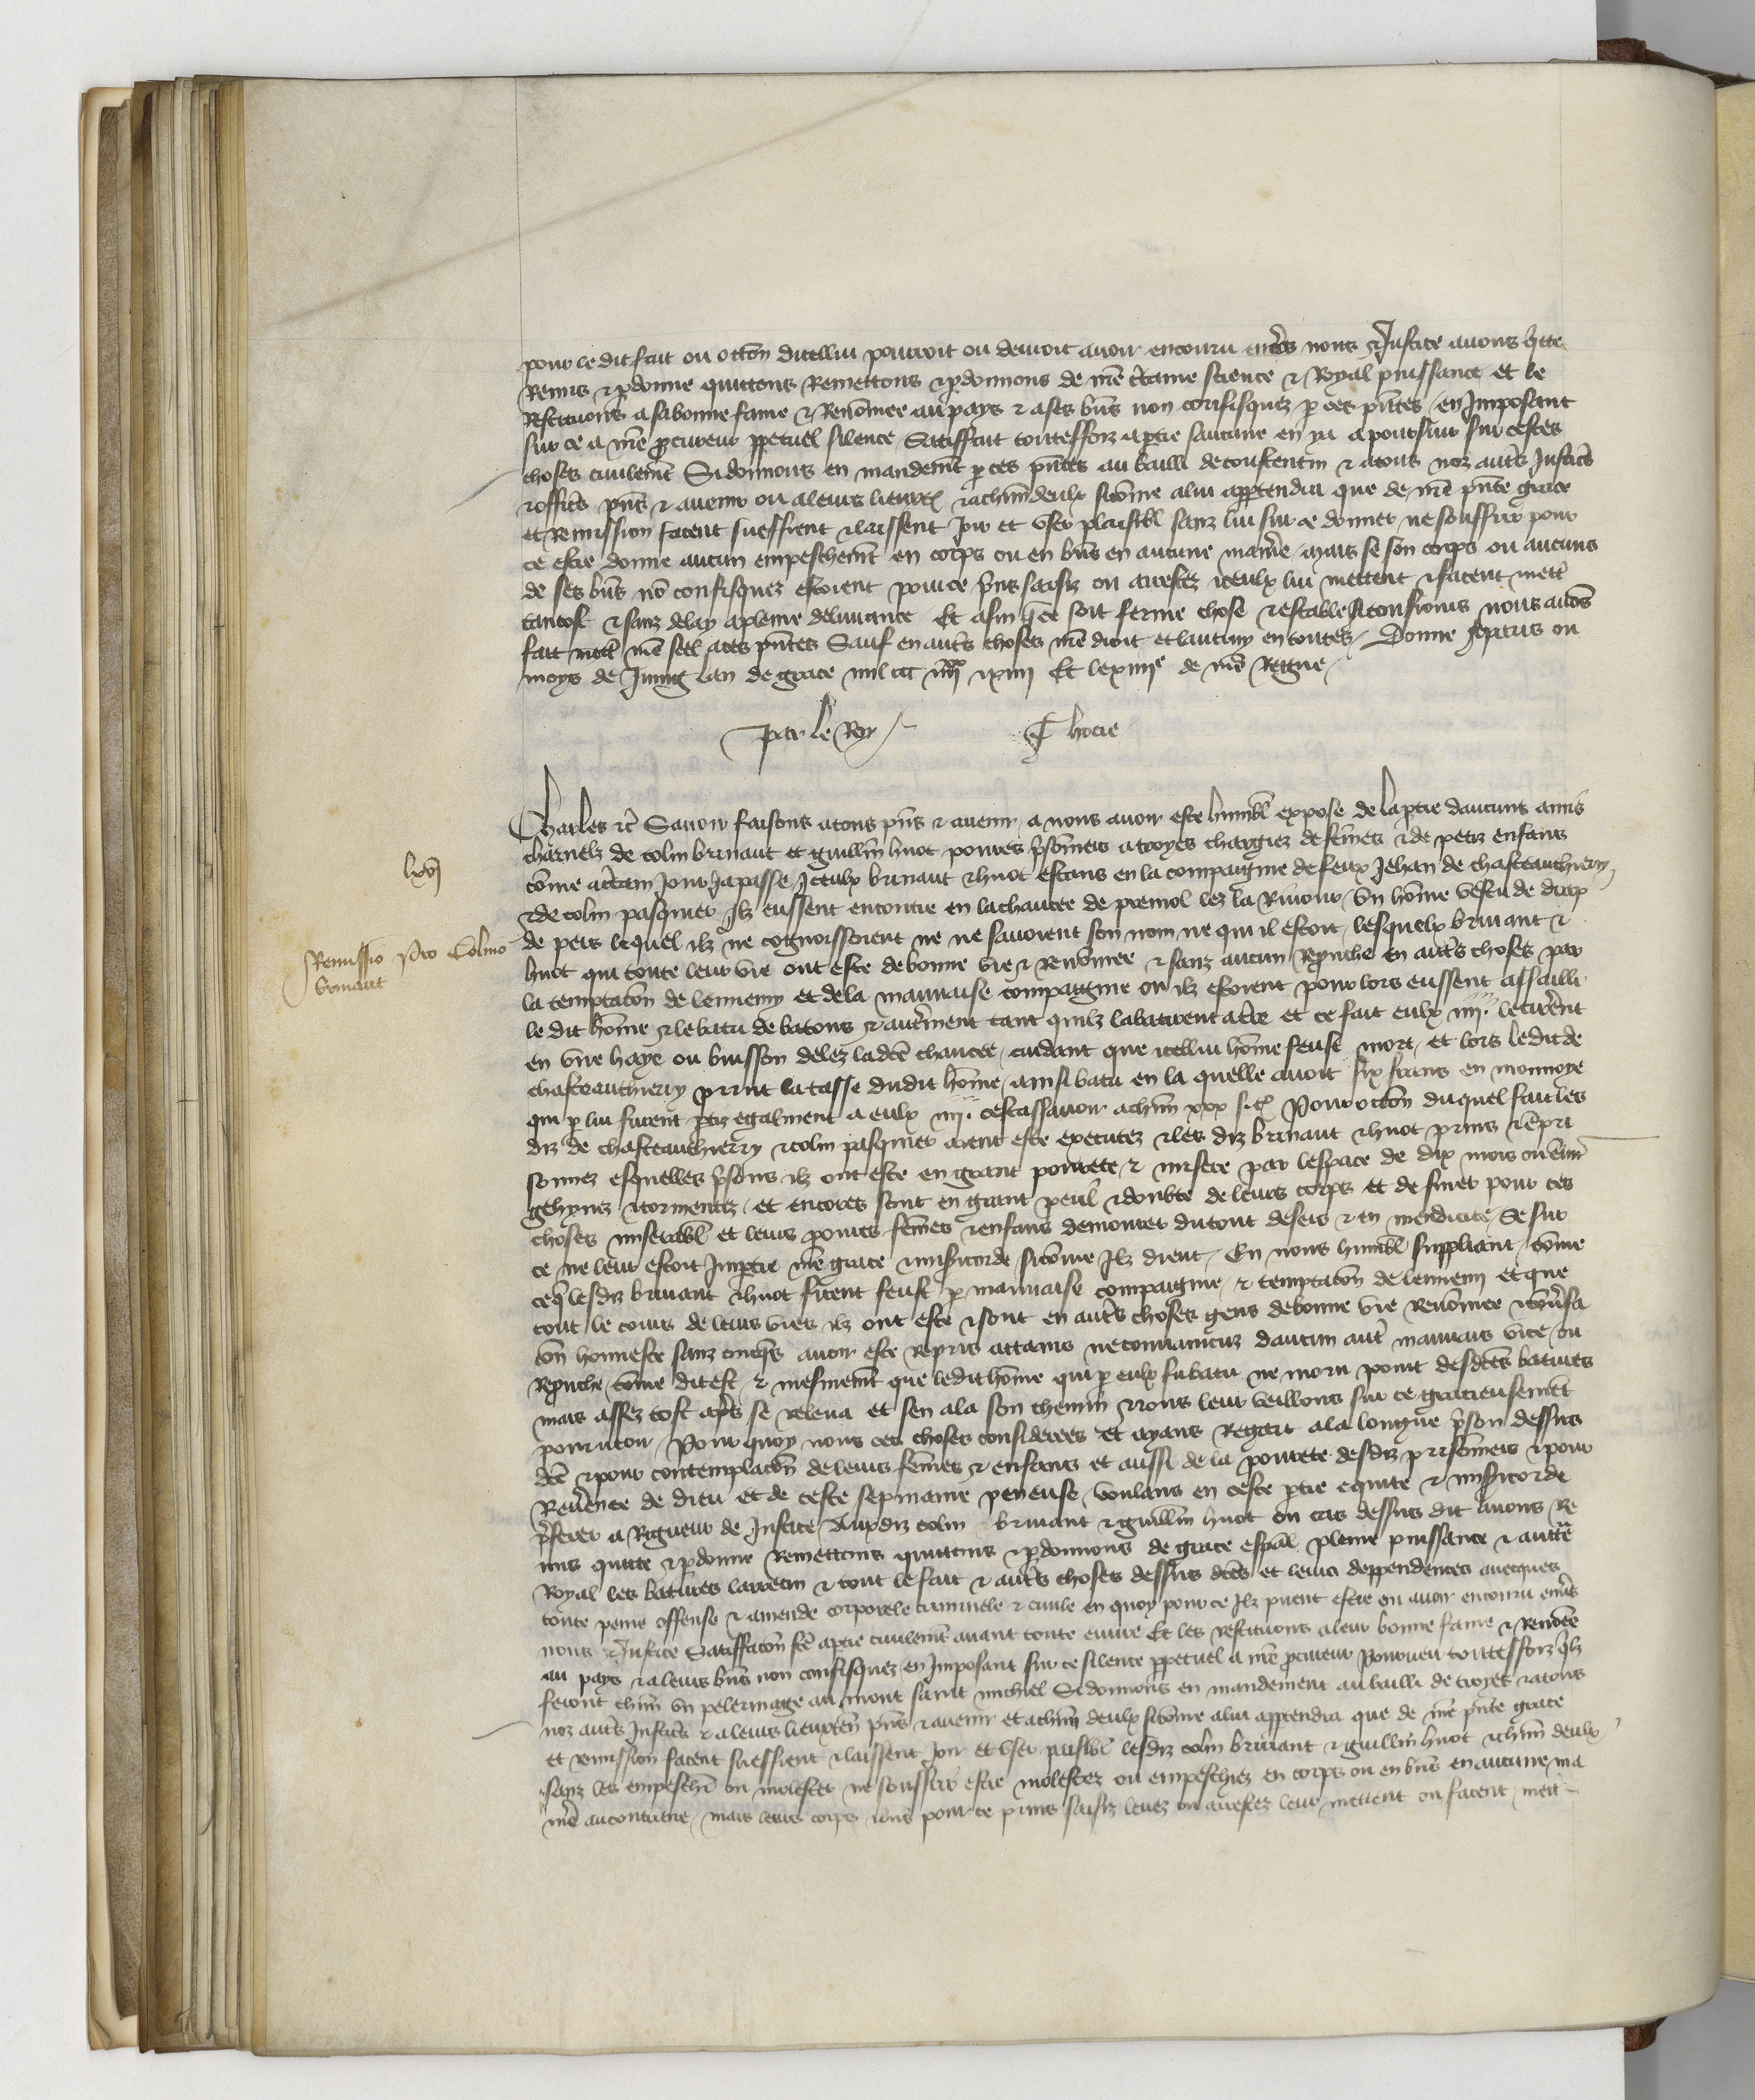 pour le dit fait ou occōn dicellui pourroit ou devroit avoir encouru envs nous & Justice avons qtte
Remis & pdonne quittons Remettons & pdonnons de nre ctaine science & Royal puissance et le
Restituons a sa bonne fame & Renōmee au pays & a ses bns non confisquez p ces pntes en Imposant
sur ce a nre pcureur ppetuel silence Satisffait touteffoiz a ptie saucune en ya a poursuir sur cestes
choses civilemt Si donnons en mandemt p ces pntes au bailli de coustentin & a tous noz auts Justics
& offics pns & avenir ou a leurs lieux & a chun deulx sicōme a lui apptendra que de nre pnte grace
et Remission facent sueffrent & laissent Joir et user plaisibl sanz lui sur ce donner ne souffrir pour
ce estre donne aucun empeschemt en corps ou en bns en aucune manie mais se son corps ou aucuns
de ses bns nō confisquez estoient pour ce prins saisiz ou arrestez iceulx lui mettent & facent mett
tantost & sanz delay a pleine delivrance Et afin q ce soit ferme chose & estable a tousiours nous avōs
fait mett nre seel a ces pntes Sauf en auts choses nre droit et lautruy en toutes Donne a paris ou
moys de Juing lan de grace mil ccc iiiixx xiiii Et le xiiiie de nre Regne
Par le Roy
Charles &c Savoir faisons a tous pns & avenir a nous avoir este humbl expose de la ptie daucuns amis
charnelz de colin brinaut et guillin huot povres psōniers a troyes chargiez de femes & de petiz enfans
cōme a ctain Jour Ja passe Iceulx brinaut & huot estans en la compaignie de feux Jehan de chasteauthierry
& de colin pasquier Ilz eussent encontre en la chaucee de premol lez la Rivour un hōme vestu de drap
de pers lequel ilz ne cognoissoient ne ne savoient son nom ne qui il estoit lesquelx brinaut &
huot qui toute leur vie ont este de bonne vie & renōmee & sanz aucun Reprouche en auts choses par
la temptacōn de lennemy et de la mauvaise compaignie ou ilz estoient pour lors eussent assailli
le dit hōme & le batu de batons & autrement tant quilz labatirent a tre et ce fait eulx iiii. le tirerent
en une haye ou buisson delez ladcte chaucee cuidant que icellui hōme feust mort et lors ledit de
chasteauthierry print la tasse dudit hōme ainsi batu en la quelle avoit six frans en monnoye
qui p lui furent ptiz egalment a eulx iiii. cestassavoir a chun xxx s. t. Pour occōn duquel fait les
diz de chasteauthierry & colin pasquier aient este executez & les diz brinaut & huot prins & empri
sonnez esquelles psons ilz ont este en grant povrete & misere par lespace de dix mois ou envir
gehynez & tormentez et encores sont en grant peril & doubte de leurs corps et de finer pour ces
choses miserabl et leurs povres femes & enfans demourer du tout desers & en mendicite Se sur
ce ne leur estoit Impartie nre grace & misicorde sicōme Ilz dient En nous humbl suppliant cōme
ce q lesdiz brinaut & huot firent feust p mauvaise compaignie & temptacōn de lennemi et que
tout le cours de leurs vies ilz ont este & sont en auts choses gens de bonne vie Renōmee & cōvsa
cōn honneste sanz onques avoir este repris attains ne convaincuz daucun aut mauvais vice ou
Reprouche cōme dit est & mesmemt que ledit hōme qui p eulx fu batu ne moru point desdcts batures
mais assez tost aps se releva et sen ala son chemin & nous leur veillons sur ce gracieusemt
pourveoir Pour quoy nous ces choses considerees et ayans Regart a la longue pson dessus
dcte & pour contemplacōn de leurs femes & enfans et aussi de la povrete desdiz prisōniers & pour
Reverence de dieu et de ceste sepmaine peneuse voulans en ceste ptie equite & misicorde
pferer a Rigueur de Justice Auxdiz colin brinaut & guillin huot ou cas dessus dit avons Re
mis quitte & pdonne Remettons quittons & pdonnons de grace espal pleine puissance & auttē
Royal les batures larrecin & tout le fait & auts choses dessus dcts et leurs deppendences avecques
toute peine offense & amende corporele criminele & civile en quoy pour ce Ilz puent estre ou avoir encouru envs
nous & Justice Satisffacōn fte a ptie civilemt avant toute euvre Et les restituons a leur bonne fame & Renōmee
au pays & a leurs bns non confisquez en Imposant sur ce silence ppetuel a nre pcureur Pourveu touteffoiz qlz
feront chun un pelerinage au mont saint michiel Si donnons en mandement au bailli de troyes & a tous
noz auts Justics & a leurs lieuxten pns & avenir et a chun deulx sicōme a lui apptendra que de nre pnte grace
et remission facent sueffrent & laissent Joir et user paisibl lesdiz colin brinaut & guillin huot & chun deulx
sanz les empeschr ou molester ne souffrir estre molestez ou empeschiez en corps ou en bns en aucune ma
nie au contraire mais leurs corps & bns pour ce prins saisiz levez ou arrestez leur mettent ou facent mett
lxvj
Remissio Pro Colino
brinaut